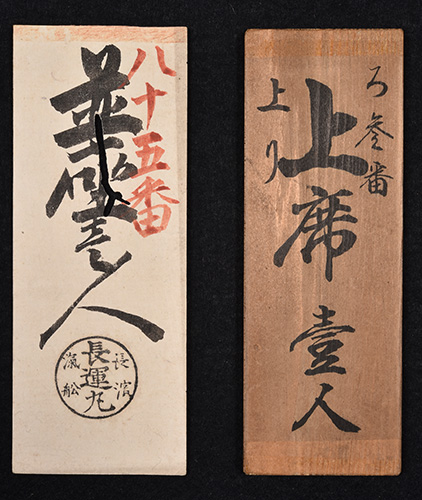 ろ參番
上席壹人
上り
八十五番
並壹人
長濱
長運丸
滊舩